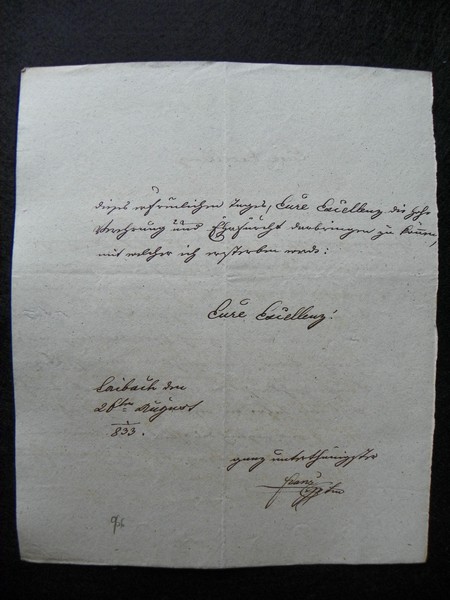 dieses erfreulichen Tages, Eure Excellenz die hohe
Verehrung und Ehrfurcht darbringen zu können,
mit welcher ich ersterben werde:
Eure Excellenz!
Laibach den
26ten August
833.
ganz unterthänigster
Franz